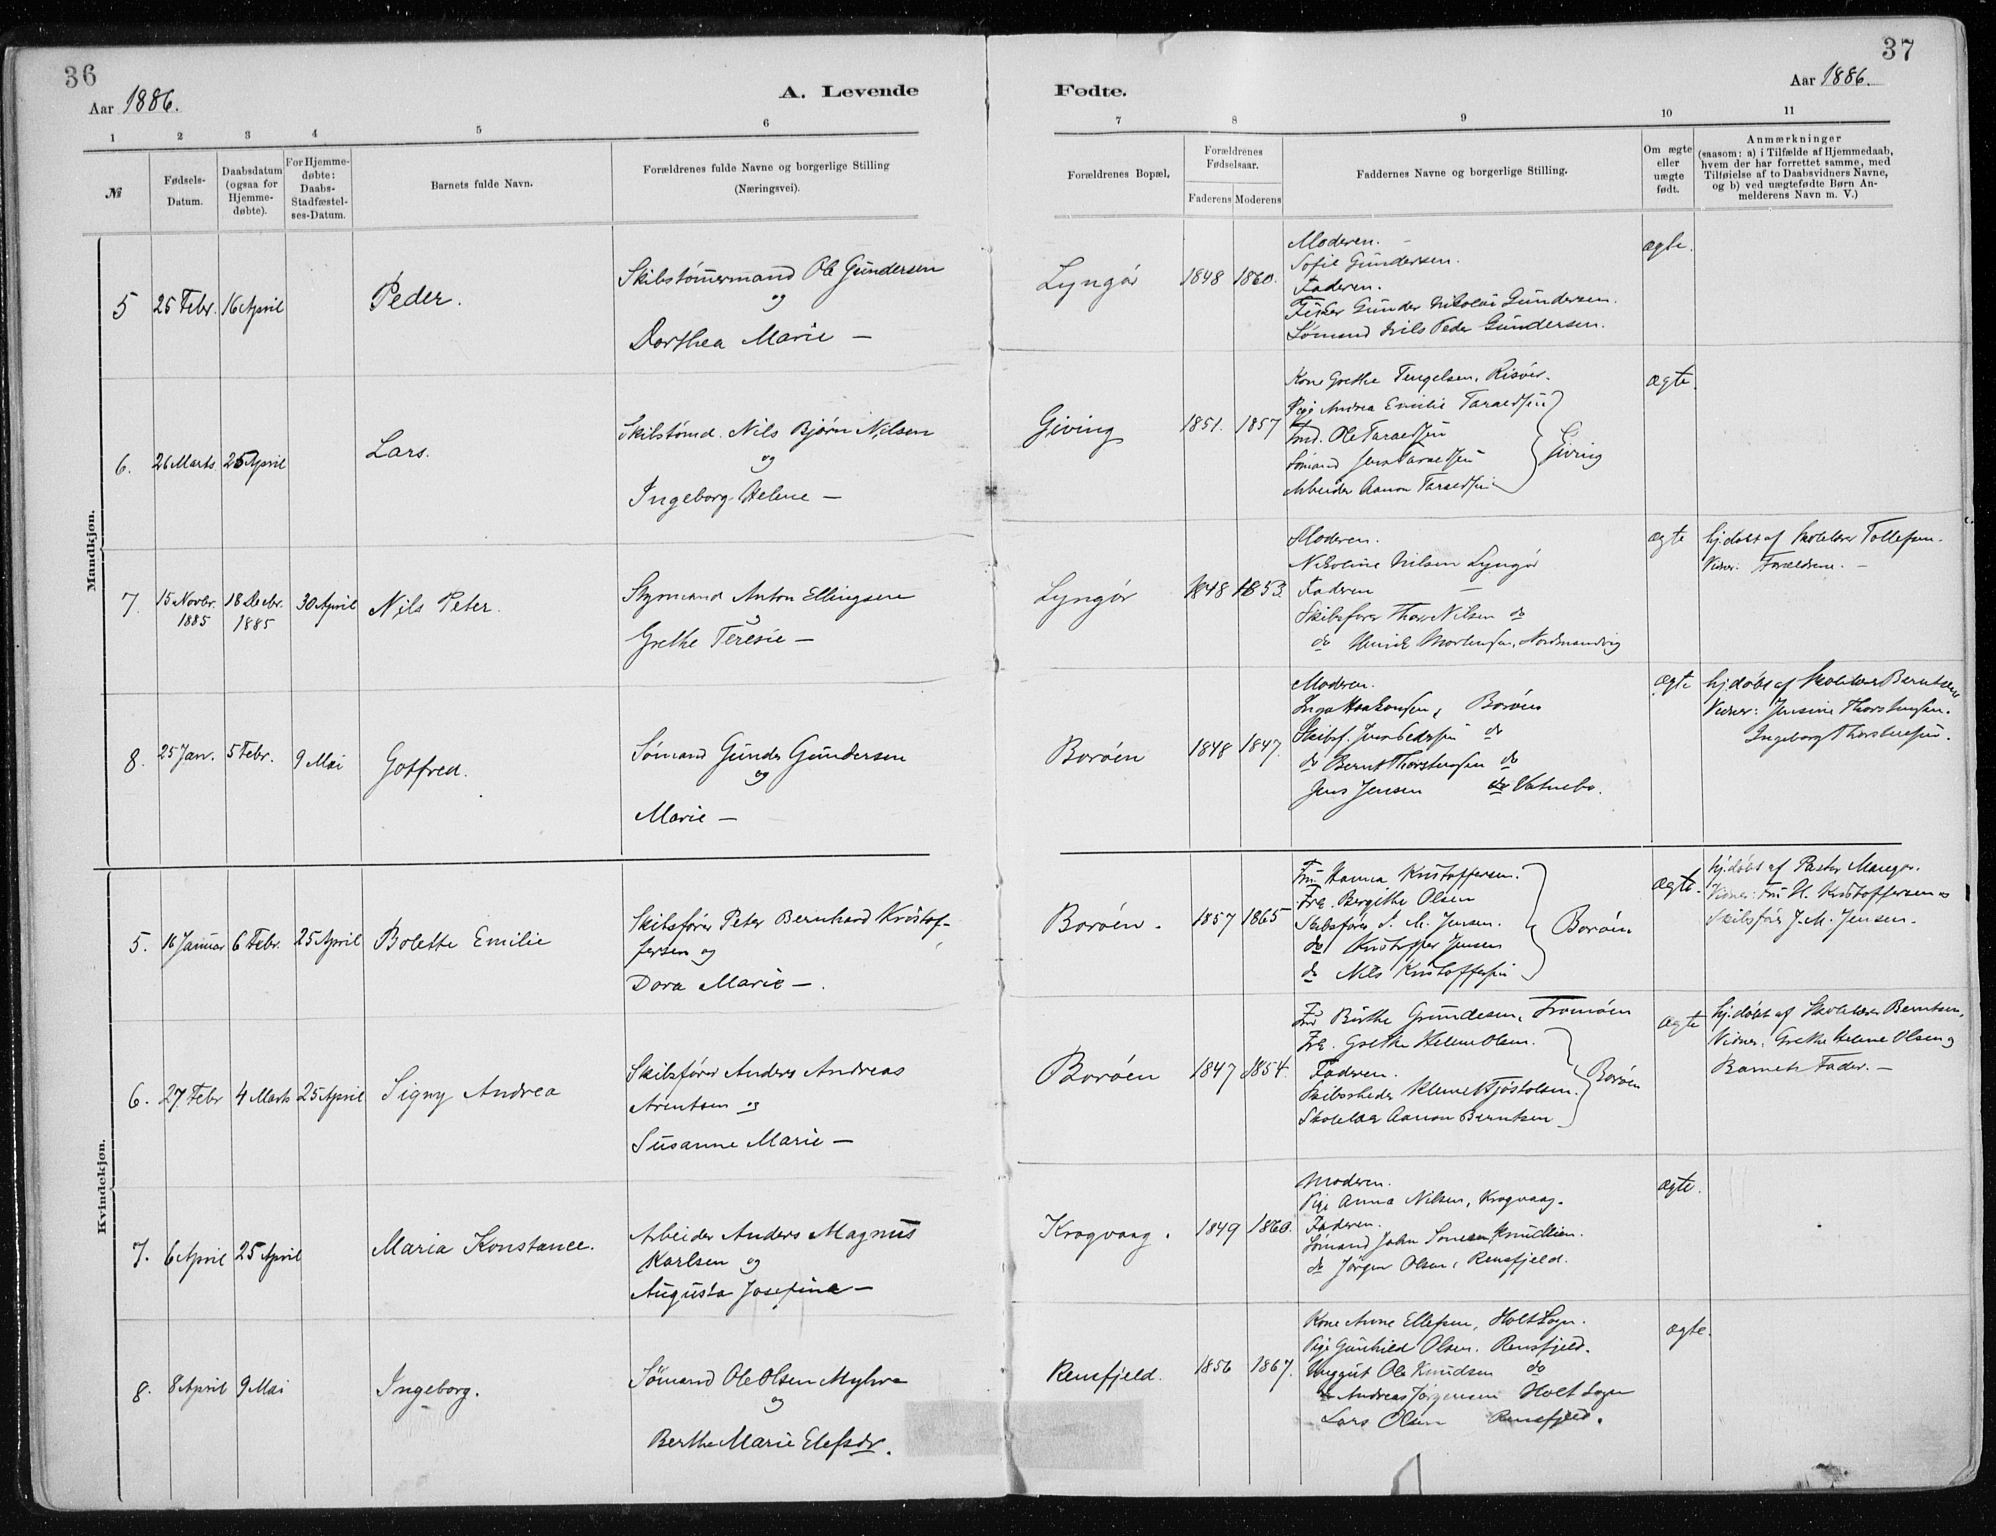 36
Aar 1886.
A. Levende
1 2 3 4 5 6
№
Fødsels-
Datum.
Daabsdatum
(ogsaa for
Hjemme-
døbte).
For Hjemme-
døbte:
Daabs-
Stadfæstel-
ses-Datum.
Barnets fulde Navn.
Forældrenes fulde Navne og borgerlige Stilling
(Næringsvei).
Mandkjøn.
5 25 Febr. 16 April Peder.
Skibstømmermand Ole Gundersen
og
Dorthea Marie —
6. 26 Marts 25 April Lars.
Skibstømd. Nils Bjørn Nilsen
og
Ingeborg Helene —
7. 15 Novbr. 1885 18 Decbr. 1885 30 April Nils Peter.
Styrmand Anton Ellingsen
Grethe Teresie —
8. 25 Jan. 5 Febr. 9 Mai Gotfred.
Sømand Gunder Gundersen
og
Marie —
Kvindekjøn.
5. 16 Januar 6 Febr. 25 April Bolette Emilie
Skibsfører Peter Bernhard Kristof-
fersen og
Dora Marie —.
6. 27. Febr 4 Marts 25 April Signy Andrea
Skibsfører Anders Andreas
Arentsen og
Susanne Marie —
7. 6 April 25 April Maria Konstance.
Arbeider Anders Magnus
Karlsen og
Augusta Josefine —
8. 8 April 9 Mai Ingeborg.
Sømand Ole Olsen Myhre
og
Berthe Marie Elefsdr.
37
Aar 1886.
Fødte.
7 8 9 10 11
Forældrenes Bopæl.
Forældrenes
Fødselsaar.
Faderens Moderens
Faddernes Navne og borgerlige Stilling.
Om ægte
eller
uægte
født.
Anmærkninger
(saasom: a) i Tilfælde af Hjemmedaab,
hvem der har forrettet samme, med
Tilføielse af to Daabsvidners Navne,
og b) ved uægtefødte Børn An-
melderens Navn m. V.)
Lyngør 1848 1860.
Moderen.
Sofie Gundersen.
Faderen.
Fisker Gunder Nikolai Gundersen.
Sømand Nils Peder Gundersen.
ægte.
Giving 1851. 1857
Kone Grethe Tengelsen, Risør.
Pige Andrea Emilie Taraldsen
Ole Taraldsen
Sømand Jens Taraldsen
Arbeider Aanon Taraldsen
Giving
ægte.
Lyngør 1848 1853.
Moderen.
Nikoline Nilsen Lyngør
Faderen —
Skibsfører Thor Nilsen do
do Henrik Mortensen, Nordmandvig
ægte
hj.døbt af Skolelærer Tollefsen.
Vidner: Forældrene. —
Borøen 1848 1847.
Moderen.
Inga Haakonsen, Borøen
Skibsf. Jens Pedersen do
do Bernt Thorstensen do
Jens Jensen do Vatnebo.
ægte
hj.døbt af Skolelærer Berntsen
Vidner: Jensine Thorstensen.
Ingeborg Thorstensen.
Borøen. 1857 1865
Fru Hanna Kristoffersen.
Frk. Bergithe Olsen
Skibsfører J. M. Jensen.
do Kristoffer Jensen
do Nils Kristoffersen
Borøen
ægte.
hj.døbt af Pastor
Vidner: Fru H. Kristoffersen og
Skibsfører J. M. Jensen.
Borøen 1847 1854.
Fru Birthe Gundesen, Tromøen
Frk. Grethe Helene Olsen.
Faderen.
Skibsrheder Klemet Tjøstolsen.
Skolelær Aanon Berntsen
Borøen
ægte
hj.døbt af Skolelærer Berntsen,
Vidner: Grethe Helene Olsen og
Barnets Fader. —
Krogvaag. 1849 1860.
Moderen.
Pige Anna Nilsen, Krogvaag.
Faderen.
Sømand John Knudtien.
do Jørgen Olsen, Rensfjeld.
ægte.
Rensfjeld. 1856 1867.
Kone Anne Ellefsen, Holt Sogn.
Pige Gunhild Olsen. Rensfjeld.
Unggut Ole Knudsen do
do Andreas Jørgensen Holt Sogn
Lars Olsen Rensfjeld.
ægte.